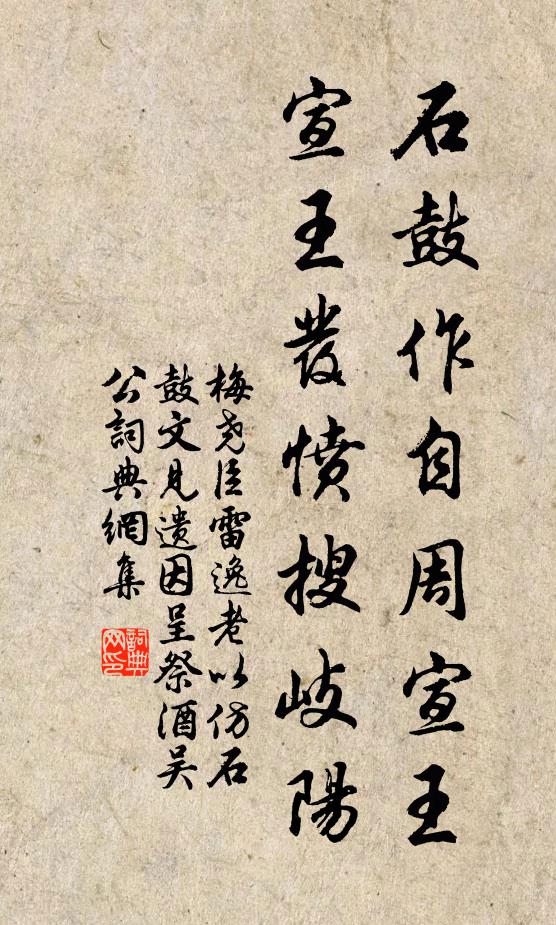 石鼓作自周宣王
宣王發憤搜岐陽
梅尧臣雷逸老以仿石
鼓文見遺因呈祭酒吴
公詞典網集
詞典網印